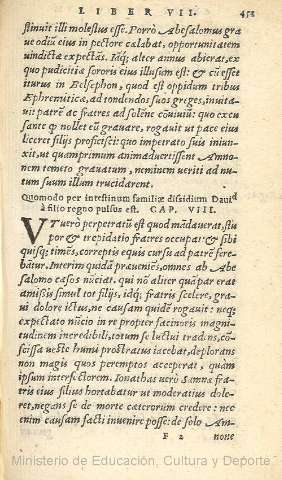 LIBER VII. 458
stinuit illi molestus esse. Porrò Abesalomus gra
ue odiũ eius in pectore calabat, opportunitatem
uindictæ expectãs. Idq́; alter annus abierat, ex
quo pudicitia sororis eius illusum est: & cũ esset
iturus in Belsephon, quod est oppidum tribus
Ephremiticæ, ad tondendos suos greges, inuita-
uit patrẽ ac fratres ad solẽne cõuiuiũ: quo excu
sante ꝙ nollet eũ grauare, rogauit ut pace eius
liceret filijs proficisci: quo impetrato suis iniun-
xit, ut quamprimum animaduertissent Ammo-
nem temeto grauatum, neminem ueriti ad nu-
tum suum illum trucidarent.
Quomodo per intestinum familiæ dissidium Dauid
à filio regno pulsus est. CAP. VIII.
VT uerò perpetratũ est quod mãdauerat, stu
por & trepidatio fratres occupat: & sibi
quisq; timẽs, correptis equis cursu ad patrẽ fere-
bãtur. Interim quidã præueniẽs, omnes ab Abe
salomo cæsos nũciat. qui nõ aliter quàm par erat
amissis simul tot filijs, idq́; fratris scelere, gra-
ui dolore ictus, ne causam quidẽ rogauit: neq;
expectato nũcio in re propter facinoris magni-
tudinem incredibili, totum se luctui tradẽs, cõ-
scissa ueste humi prostratus iacebat, deplorans
non magis quos peremptos acceperat, quàm
ipsum interfectorem. Ionathas uerò Sammæ fra-
tris eius filius hortabatur ut moderatius dole-
ret, negans se de morte cæterorum credere: nec
enim causam facti inuenire posse: de solo Am-
F 2 none
Ministerio de Educación, Cultura y Deporte